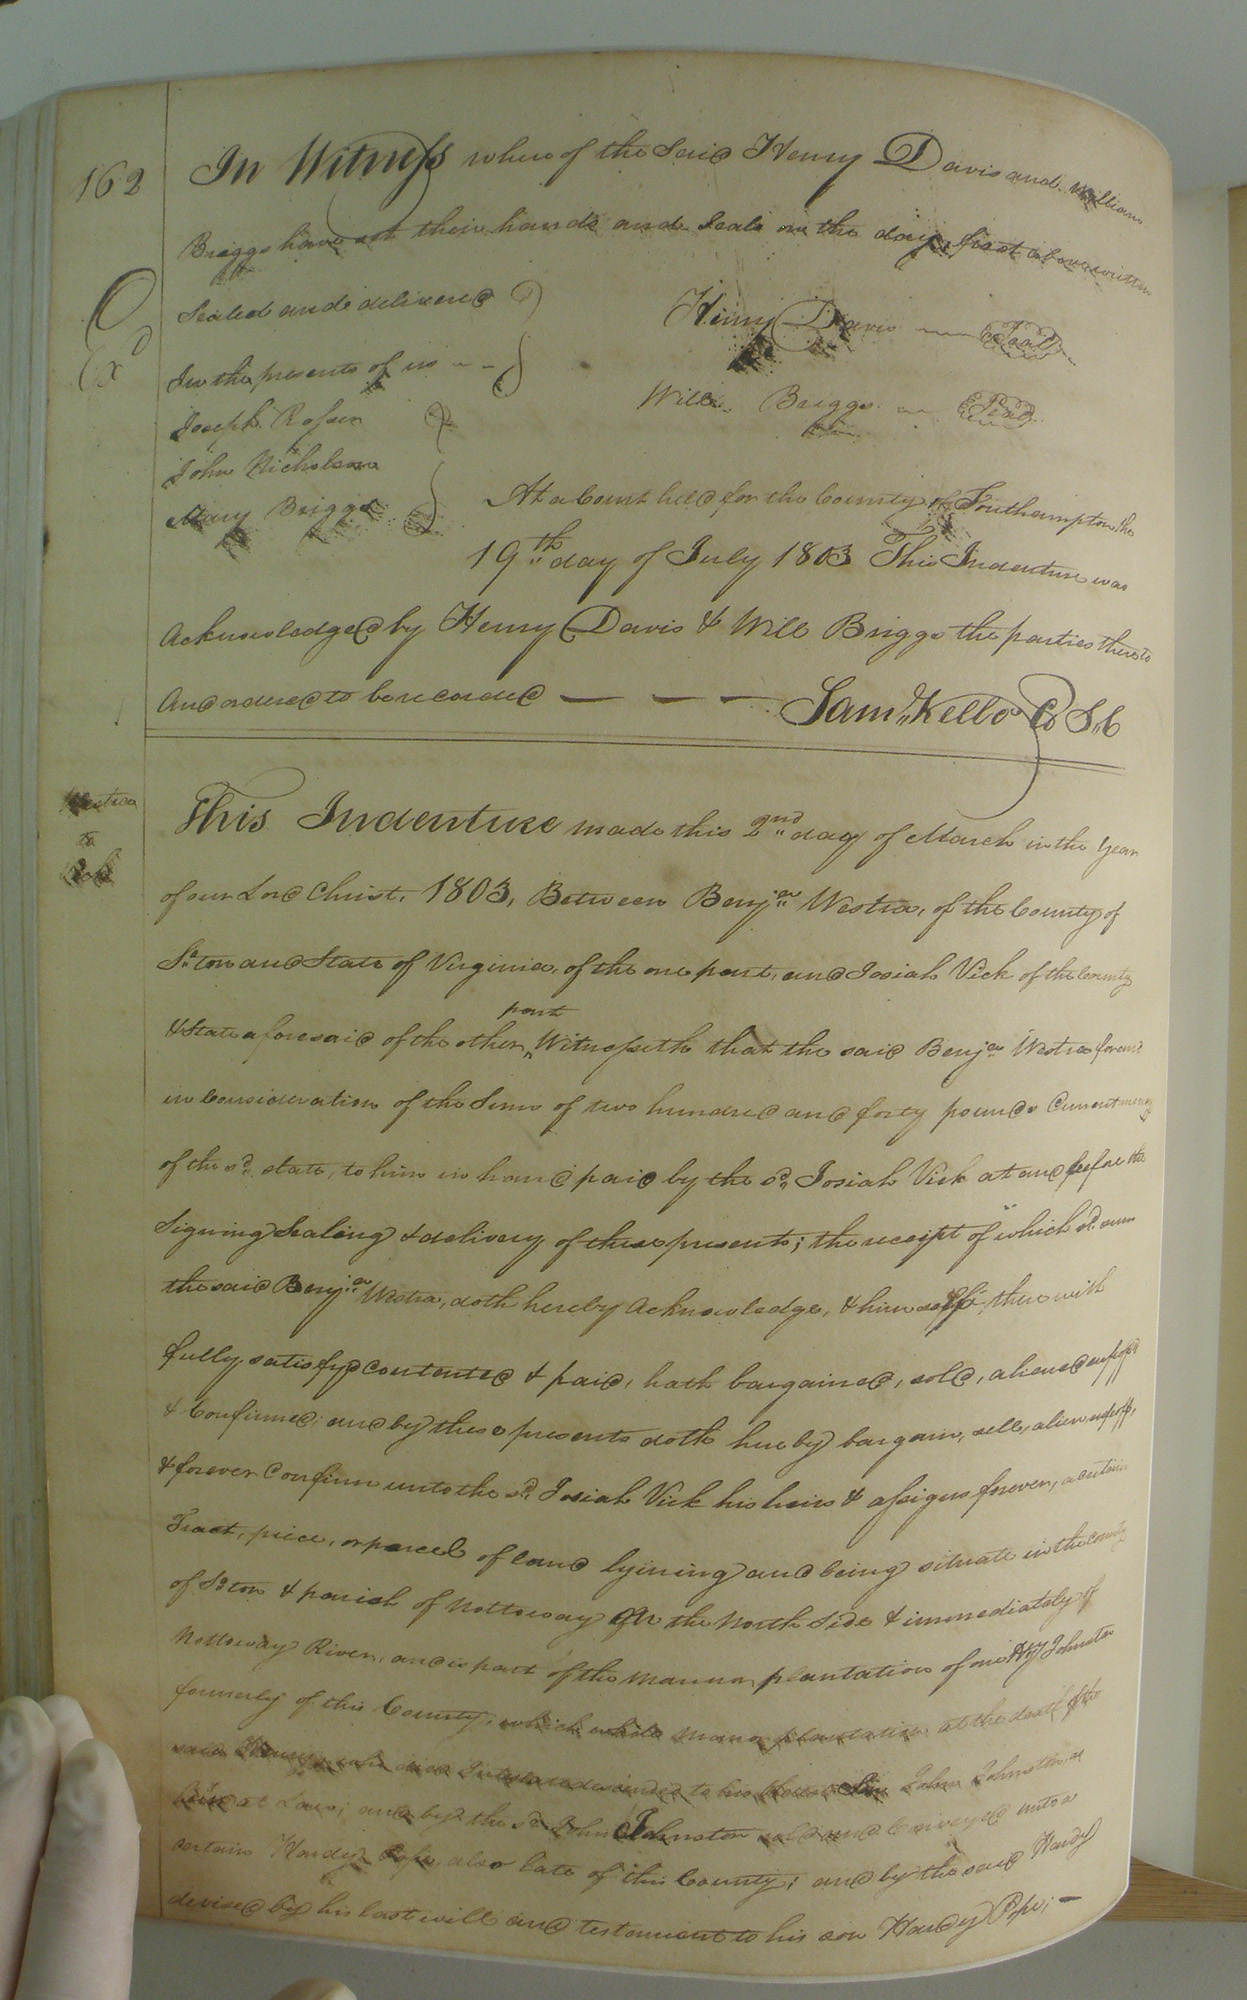 162
In Witness where of the Said Henry Davis and William
Briggs have set their hands and Seals on the day first above written
Sealed and delivered
Henry Davis Seal
In the presents of us
Will. Briggs Seal
Joseph Rosser
John Nicholson
Mary Briggs
At a Court held for the County of Southampton the
19th day of July 1803 This Indenture was
Acknowledged by Henry Davis & Will Briggs the parties thereto
And ordered to be recorded
Saml Kello Co S,,C
Westra
to
This Indenture made this 2nd day of March in the Year
of our Lord Christ, 1803, Between Benja Westra, of the County of
S.ton and State of Virginia, of the one part, and Josiah Vick of the County
part
& State aforesaid of the other, Witnesseth that the said Benja Westra for and
in Consideration of the Sum of two hundred and forty pounds Current money
of the sd. state, to him in hand paid by the sd. Josiah Vick at and before the
Signing Sealing & delivery of these presents; the receipt of which sd. sum
the said Benja Westra, doth hereby Acknowledge, & himself, therewith
fully satisfyd contented & paid, hath bargained, sold, aliened enfeoffd
& Confirmed; and by these presents doth hereby bargain, sell, alien enfeoff,
& forever Confirm unto the sd. Josiah Vick his heirs & assigns forever, a certain
Tract, piece, or parcel of land lyining and being situate in the County
of S.ton & parish of Nottoway On the North Side & immediately of
Nottoway River, and is part of the mannor plantation of one Hy Johnston
formerly of this County, which whole manor plantation at the death of the
said Henry, who died Intestate descended to his Son John Johnston as
heir at Law; and by the sd. John Johnston sold and Conveyed unto a
certain Hardy Pope, also late of this County; and by the said Hardy
devised by his last will and testament to his son Hardy Pope;